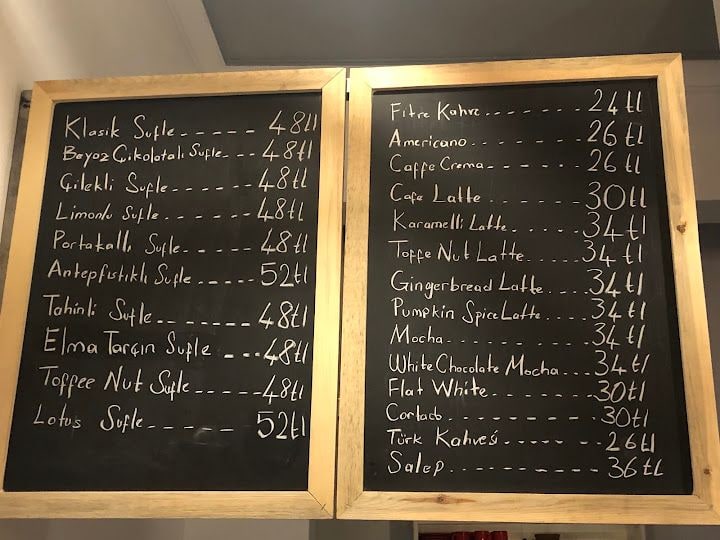 Klasik Sufle ----- 48tl
Beyaz Çikolatalı Sufle--- 48tl
Çilekli Sufle------ 48tl
Limonlu Sufle------ 48tl
Portakallı Sufle---- 48tl
Antepfıstıklı Sufle---- 52tl
Tahinli Sufle------- 48tl
Elma Tarçın Sufle --- 48tl
Toffee Nut Sufle----- 48tl
Lotus Sufle------ 52tl
Fitre Kahve------- 24tl
Americano-------- 26tl
Caffe Crema------- 26tl
Cafe Latte------- 30tl
Karamelli Latte..---- 34tl
Toffe Nut Latte.---- 34tl
Gingerbread Latte.--- 34tl
Pumpkin Spice Latte.--- 34tl
Mocha.--------- 34tl
White Chocolate Mocha... 34tl
Flat White------- 30tl
Cortado.-------- 30tl
Türk Kahvesi.------ 26tl
Salep.--------- 36tl